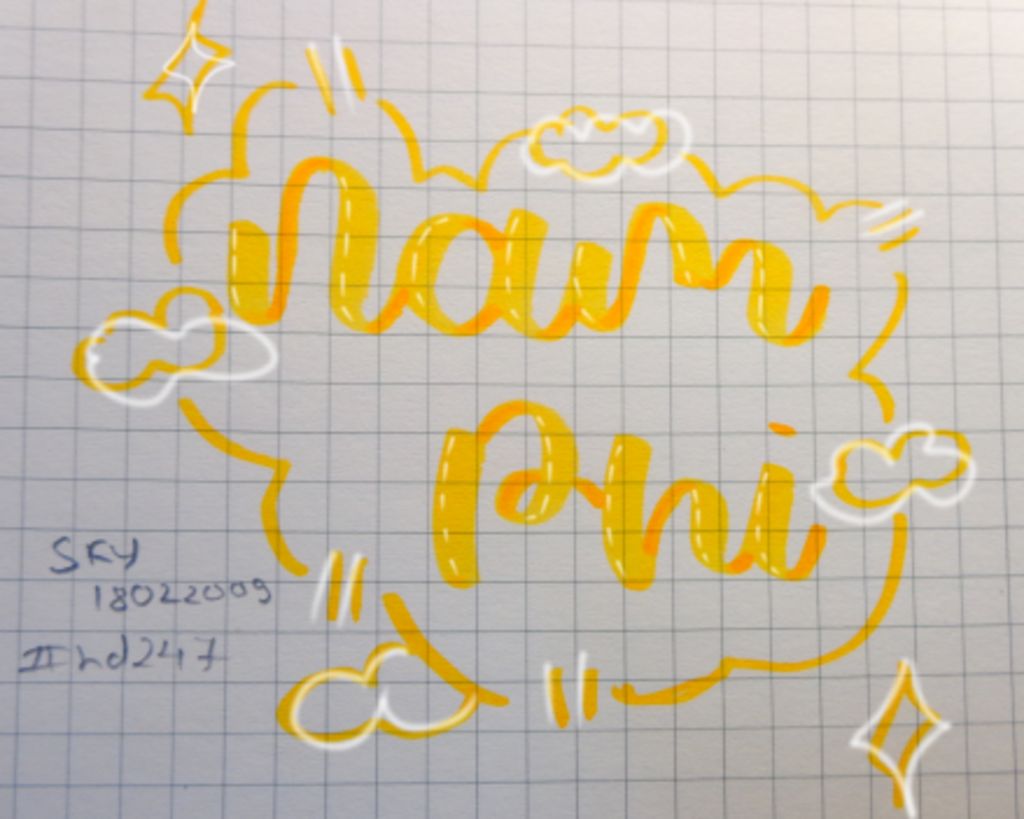 nam
Phi
SKY
18022009
#hd247